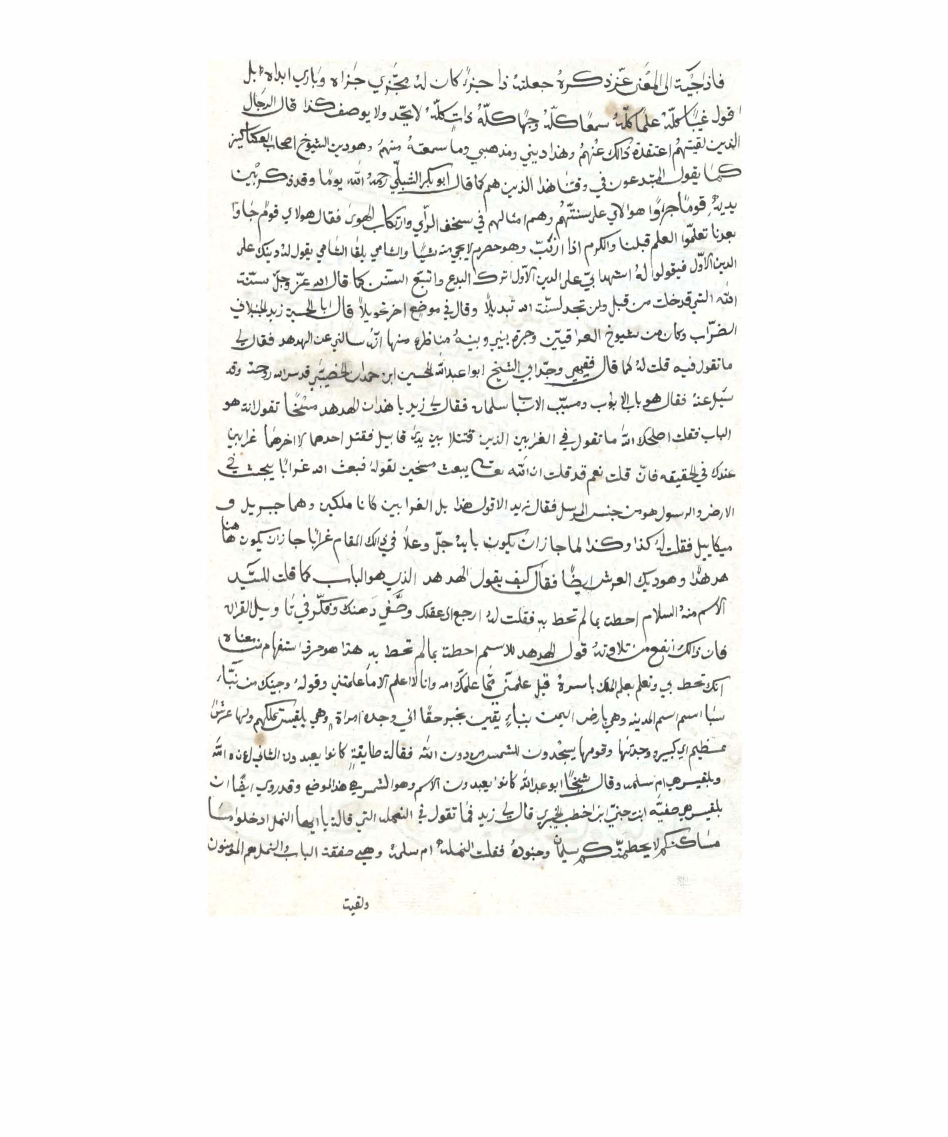 فاذا جية الى المعنى عزّ ذكره جعلته ذا جزء كان له مجتزي جزاه وباري ابداه بل
اقول غيبًا كلّه علمًا كلّه سمعًا كلّه وجهًا كلّه ذات كلّه لا يحّد ولا يوصف كذا قال الرجال
الذين لقيتهم اعتقدة ذالك عنهم وهذا ديني ومذهبي وما سمعته منهم وهو دين الشيوخ اصحاب
كما يقول المبتدعون في وقتنا هذا الذين هم كما قال ابو بكر الشبلّي رحمه الله يومًا وقد ذكر بين
يديه قومًا جراوا هولاي على سنتّهم وهم امثالهم في سخف الرّي وارتكاب الهوى فقال هولاي قوم جاوا
بعدنا تعلّموا العلم قبلنا والكرم اذا ازبّب وهو حصرم لا يجي منه شيًا والشامي يلقا الشامي يقول له دينك على
الدين الاوّل فيقولوا له اشهد انّي على الدين الاوّل اترك البدع واتبع السنن كما قال الله عزّ وجلّ سنّة
الله التي قد خلت من قبل ولن تجد لسنّة الله تبديلًا وقال في موضع اخر تحويلًا قال ابا الحسين زيد
الضرّاب وكان من شيوخ العراقيين وجرة بيني وبينه مناظره منها انّه سالني عن الهدهد فقال لي
ما تقول فيه قلت له كما قال فقيهي وجّدا بي الشيخ ابوا عبد الله الحسين ابن حمدان الخصيبي قدس الله روحه وقد
سيل عنه فقال هو باب الابواب ومسبّب الاسباب سلمان فقال لي زيد يا هذا ان الهدهد مسخًا تقول انه هو
الباب فقلت اصلحك الله ما تقول في الغرابين الذين قتتلا بين يدي قابيل فقتل احدهما الاخر هما غرابين
عندك في الحقيقه فانّ قلت نعم قد قلت ان الله تعالى يبعث مسخين لقوله فبعث الله غرابًا يبحث في
الارض والرسول هو من جنس المرسل فقال زيد لا اقول هذا بل الغرابين كانا ملكين وهما جبريل و
ميكاييل فقلت له كذا وكذا لما جاز ان يكون بابه جلّ وعلا في ذالك المقام غرابًا جاز ان يكون هاهنا
هدهدًا وهو ديك العرش ايضًا فقال كيف يقول الهدهد الذي هو الباب كما قلت للسيّد
الاسم منه السلام احطت بما لم تحط به فقلت له ارجع الى عقلك وصّفي ذهنك وفكّر في تاويل القران
فان ذالك انفع من تلاوته قول الهدهد للاسم احطة بما لم تحط به هذا هو حرف استفهام معناه
انك تحط بي وتعلم بعلم الملك باسره قبل علمتني ممّا علمك الله وانا لا اعلم الا ما علمتني وقوله وجيتك من نبّاء
سبًا اسم اسم المدينه وهي بارض اليمن بنباءٍ يقين بخبر حقًا اني وجدة امراة وهي بلقيس تملكهم ولها عرش
عظيم اي كبيره وجدتها وقومها يسجدون للشمس من دون الله فقالة طايقة كانوا يعبدون الثاني لعنه الله
وبلقيس هي ام سلمه وقال شيخنا ابو عبد الله كانوا يعبدون الاسم وهو الشمس في هذا الموضع وقد روي ايضًا ان
بلقيس هي صفيّه ابنت حيي ابن اخطب الخيبري قال لي زيد فما تقول في النمله التي قالة يا ايها النمل ادخلوا
مساكنكم لا يحطمنّكم سليمان وجنوده فقلت النملة ام سلمة وهي صفقة الباب والنمل هم المومنون
ولقيت